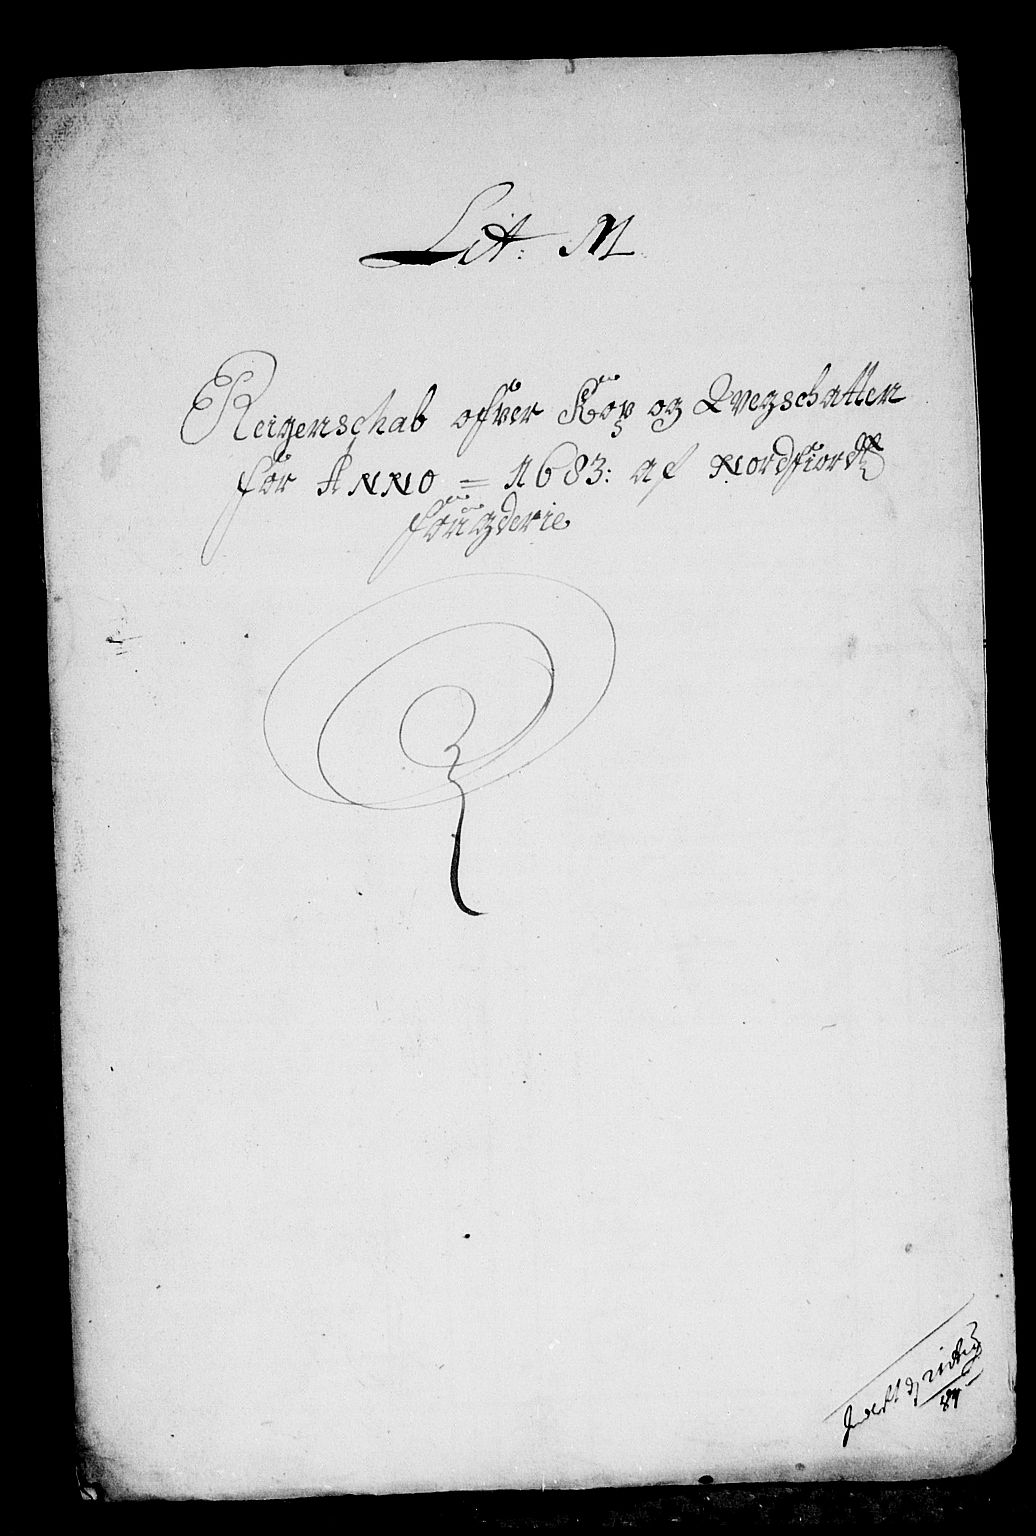 Lit: M
Reigenschab ofver Kop og Qvegschatten
for ANNO = 1683: af Nordfiordt
fougderie
84